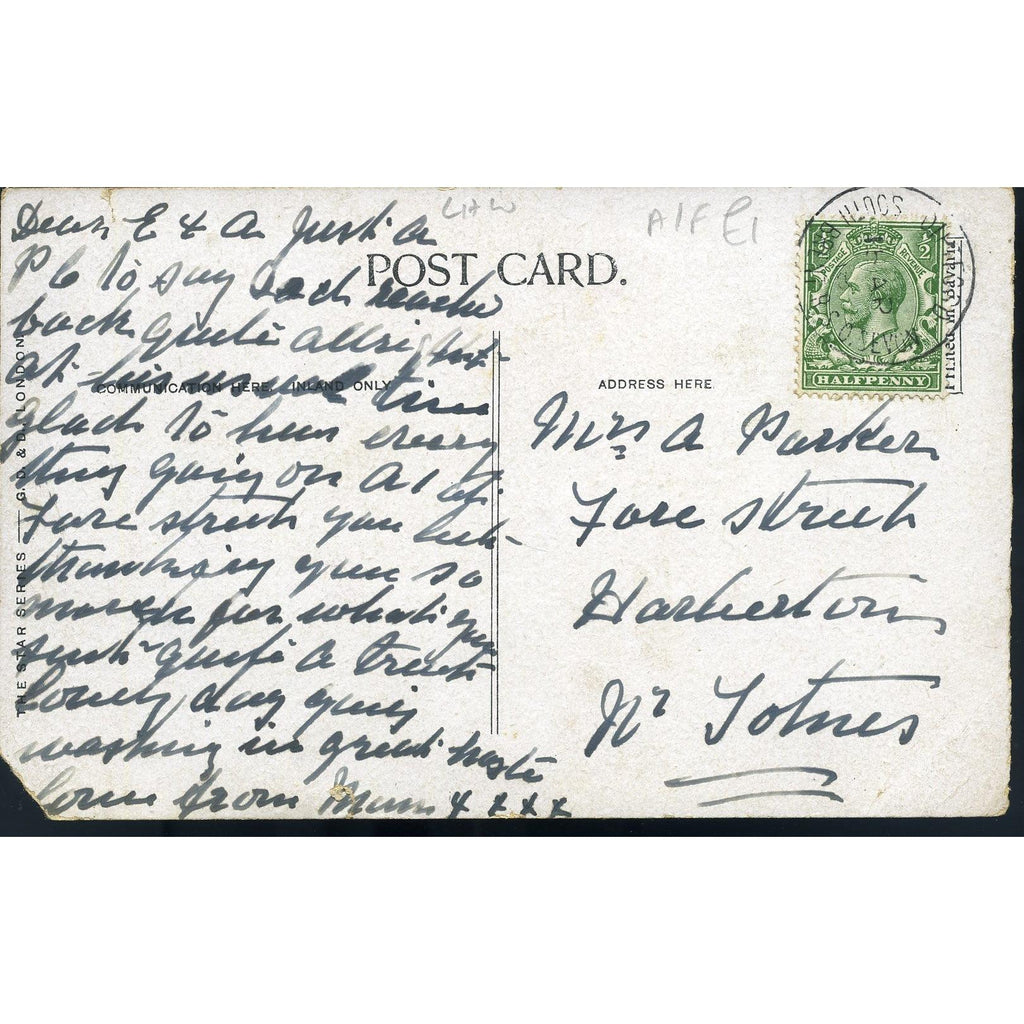 LHW
A/F £1
Dear E & A Just a
P C to say Dad reach
back quite allright
at
glad to hear every
thing going on A1 at
Fore Street you bet
thanking you so
much for what you
sent quite a treat
lovely day
washing in great haste
love from Mum x x x x
POST CARD.
COMMUNICATION HERE. INLAND ONLY.
ADDRESS HERE.
THE STAR SERIES — G.D. & D., LONDON
HALFPENNY
POSTAGE REVENUE
1/2
1/2
SOUTH
Printed in Bavaria
Mrs A Parker
Fore Street
Harberton
Nr Totnes